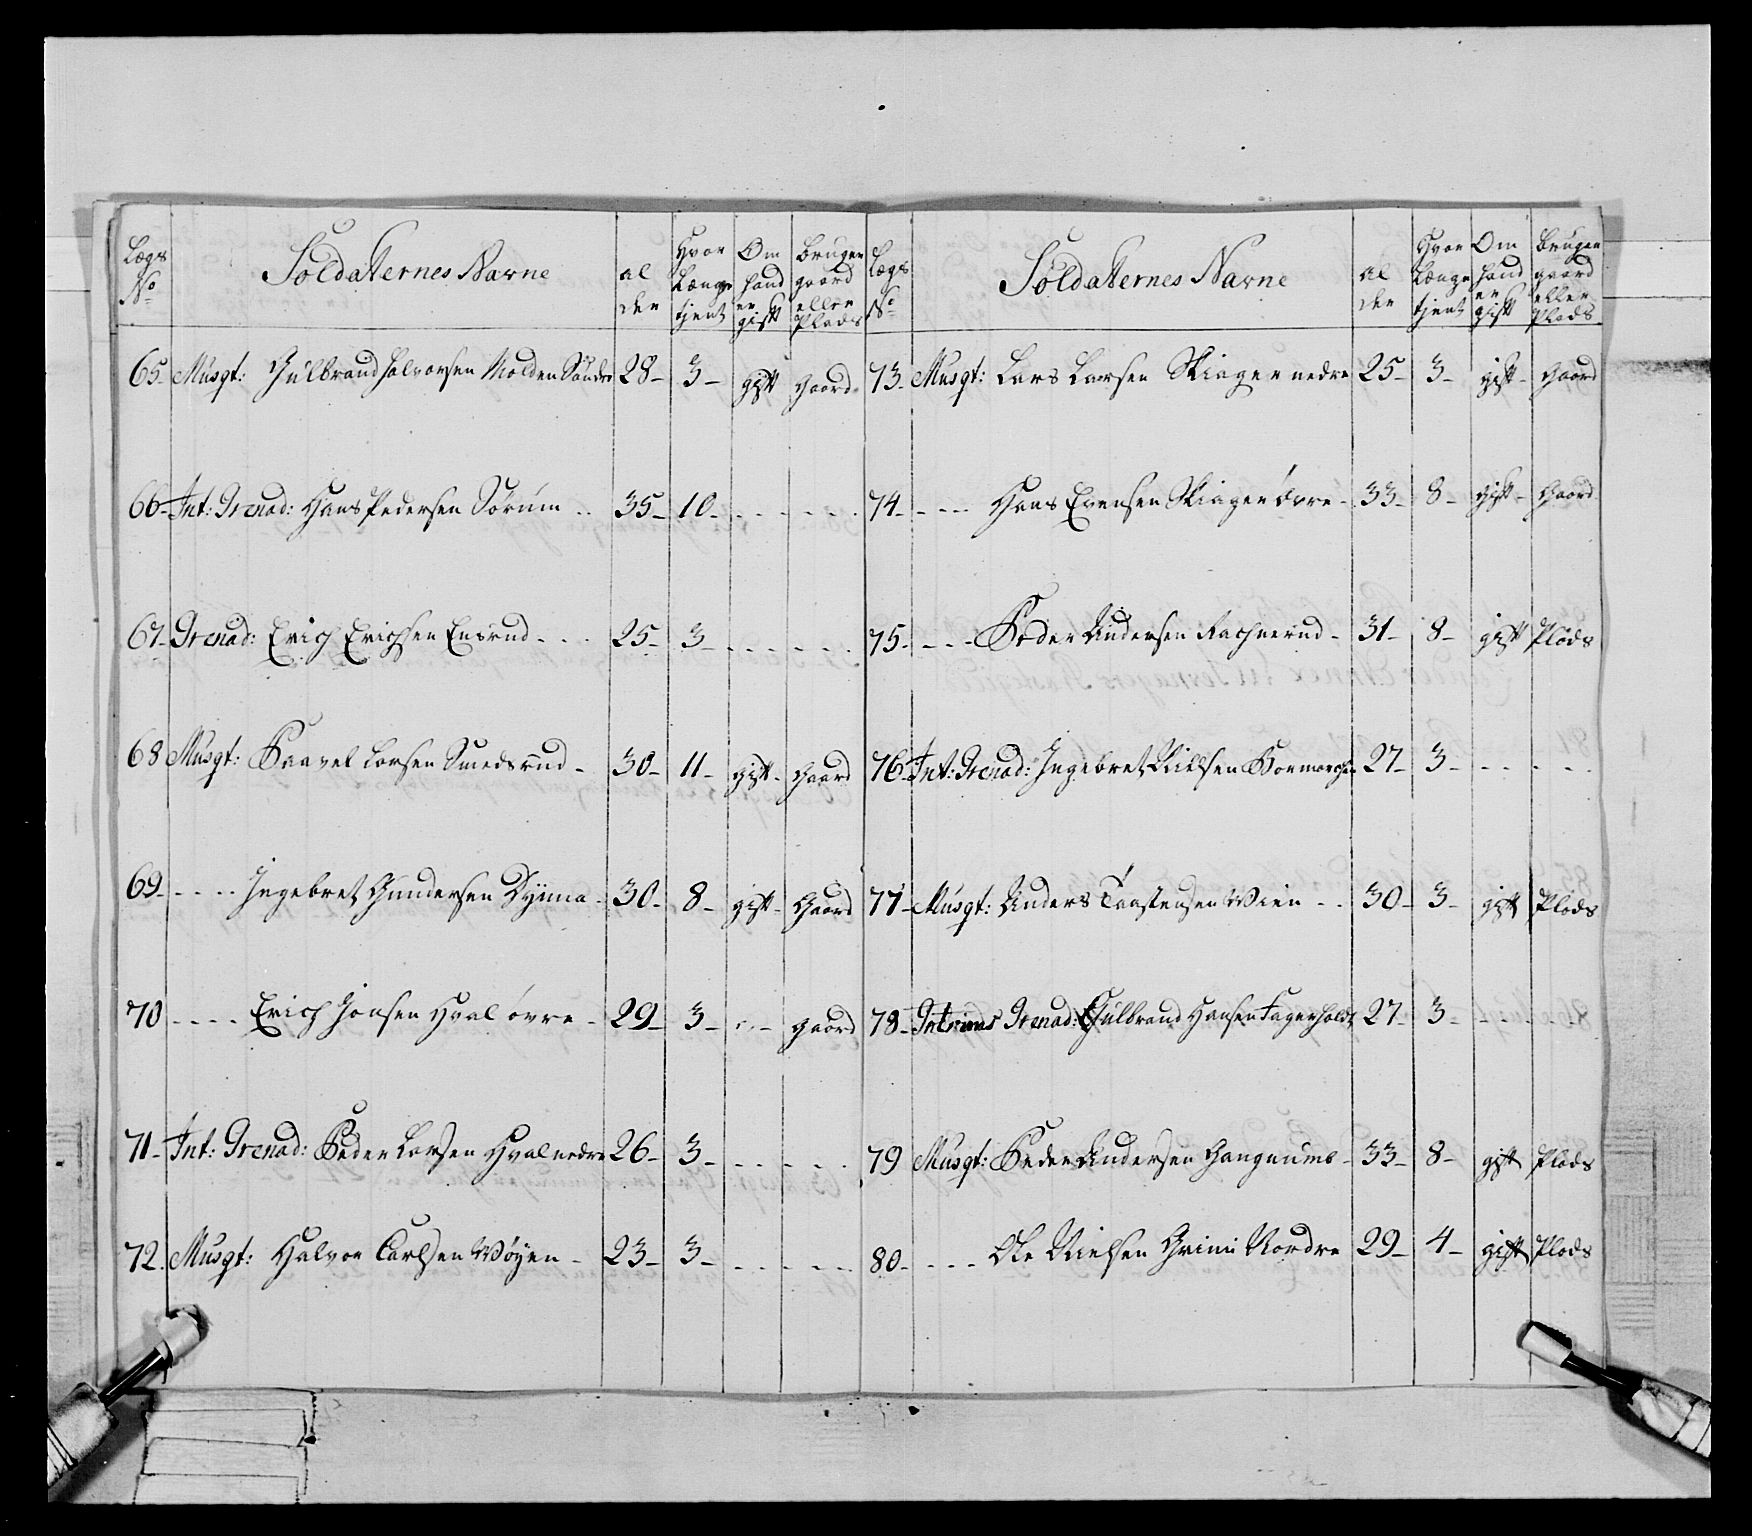 Lægs No | Soldaternes Navne | al der | Hvor Længe tjent | Om hand er gift | bruger gaard eller Plads
65 Musqt: Gulbrand Halvorsen Molden Søndre 28 3 gift gaard
66 Int: Grenad: Hans Pedersen Sørum 35 10
67 Grenad: Erich Erichsen Ensrud 25 3
68 Musqt: Paavel Larsen Smedsrud 30 11 gift gaard
69 Ingebret Gundersen Dynna 30 8 gift Gaard
70 Erich Jonsen Hval øvre 29 3 gaard
71 Int: Grenad: Peder Larsen Hval nedre 26 3
72 Musqt: Halvor Carlsen Wøyen 23 3
Lægs No | Soldaternes Navne | al der | Hvor Længe tjent | Om hand er gift | bruger gaard eller Plads
73 Musqt: Lars Larsen Skiager nedre 25 3 gift gaard
74 Hans Evensen Skiager øvre 33 8 gift gaard
75 Peder Andersen Rachnerud 31 8 gift Plads
76 Int: Grenad: Ingebret Nielsen 27 3
77 Musqt: Anders Taastensen Wien 30 3 gift Plads
78 Intrims Grenad: Gulbrand Hansen Fagerholdt 27 3
79 Musqt: Peder Andersen 33 8 gift Plads
80 Ole Nielsen Grini Nordre 29 4 gift Plads